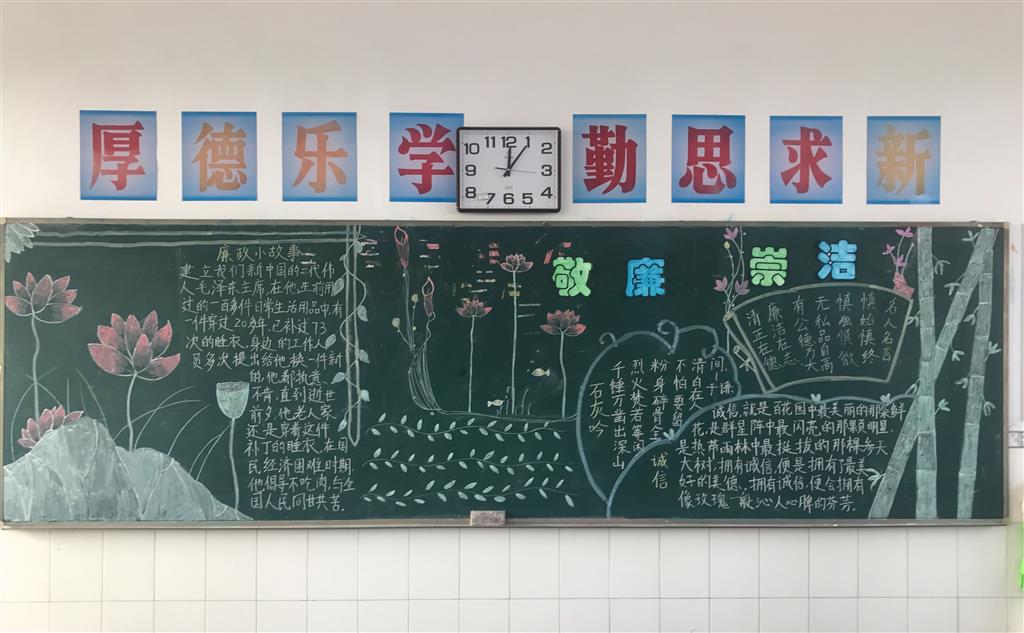 厚德乐学
勤思求新
12
1
2
3
4
5
6
7
8
9
10
11
敬廉
崇洁
廉政小故事
建立我们新中国的一代伟
人毛泽东主席,在他生前用
过的一百多件日常生活用品中,有
一件穿过20多年,已补过73
次的睡衣.身边的工作人
员多次提出给他换一件新
的,他都执意
不肯,直到逝世
前夕,他老人家
还是穿着这件
补丁的睡衣.在国
民经济困难时期.
他倡导不吃肉,与全
国人民同甘共苦.
石灰吟
千锤万凿出深山
烈火焚若等闲
粉身碎骨全
不怕要留
清白在人
间.于谦
名人名言
慎始慎终
慎独慎微
无私品自高
有公德乃大
廉洁在志
清正在德
诚信
诚信,就是百花园中最美丽的那朵鲜
花,是群星阵中最闪亮的那颗明星,
是热带雨林中最挺拔的那棵参天
大树,拥有诚信,便是拥有了最美
好的美德,拥有诚信,便会拥有
像玫瑰一般沁人心脾的芬芳.